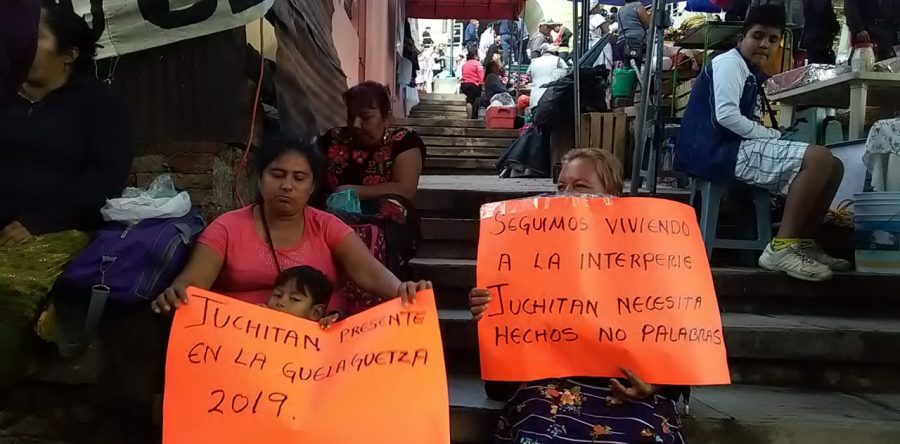 JUCHITAN PRESENTE
EN LA GUELAGUETZA
2019.
SEGUIMOS VIVIENDO
A LA INTERPERIE
JUCHITAN NECESITA
HECHOS NO PALABRAS